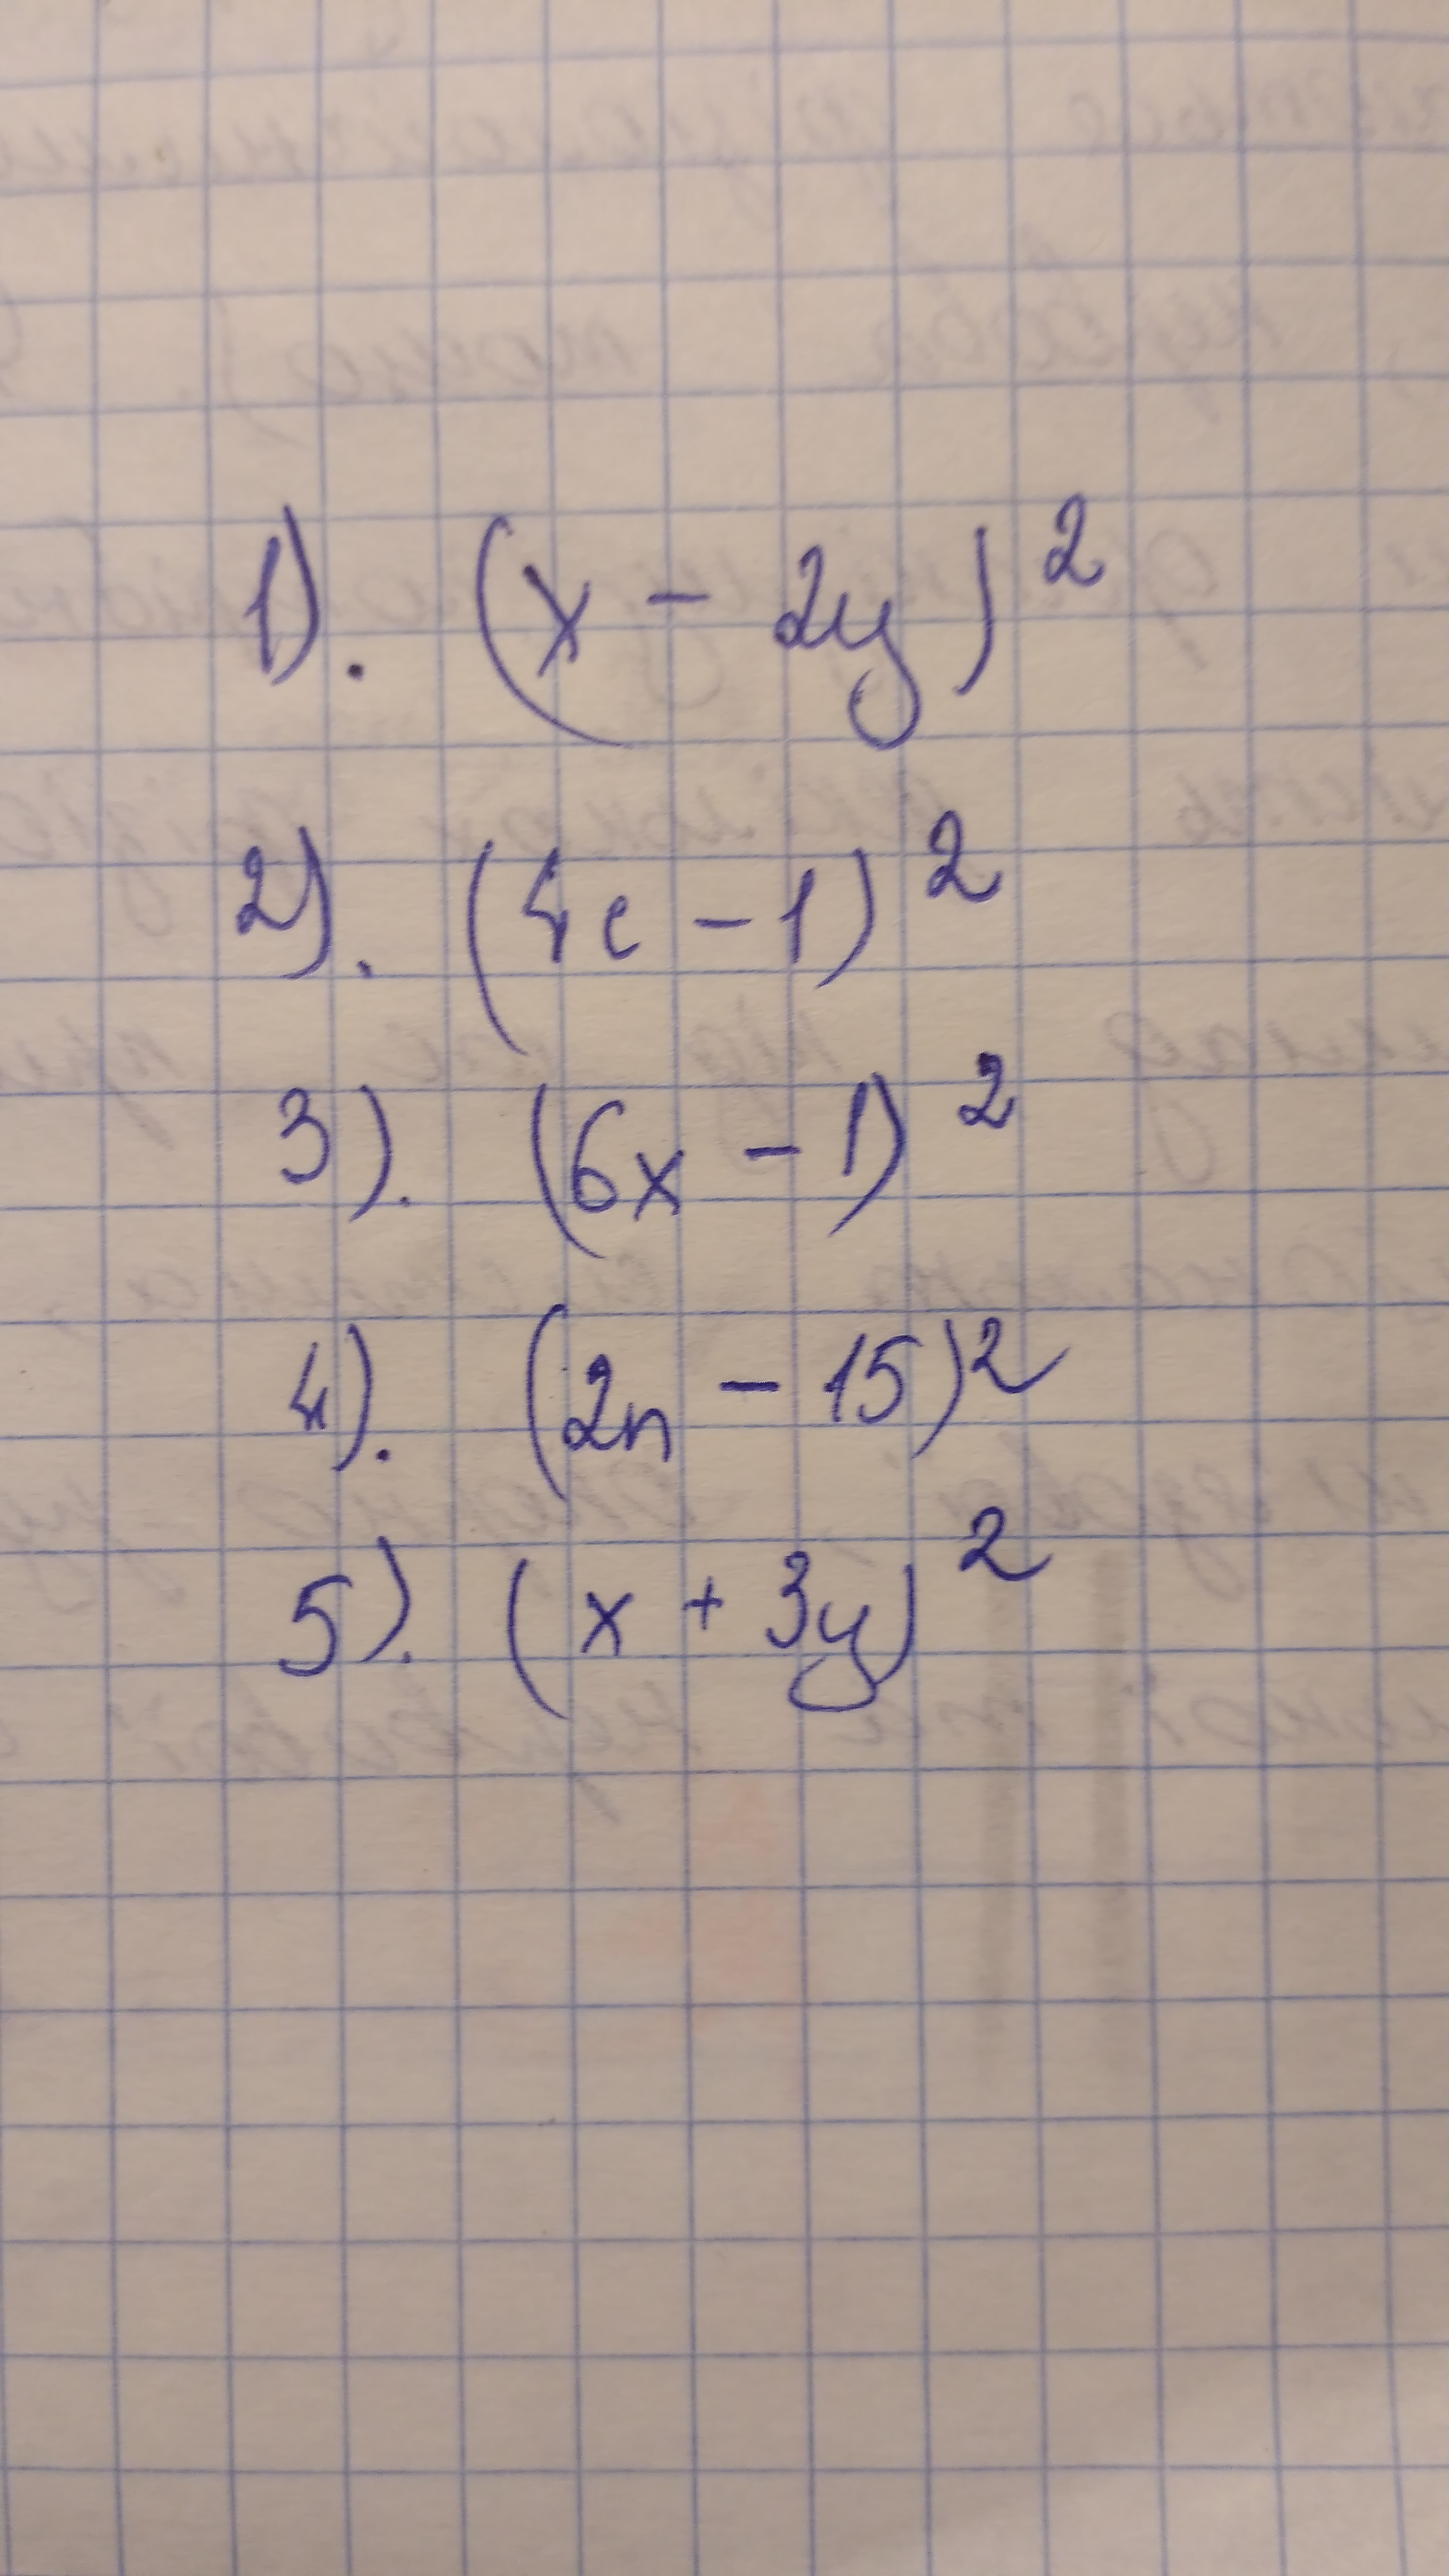 1). (x - 2y)²
2). (4c - 1)²
3). (6x - 1)²
4). (2n - 15)²
5). (x + 3y)²